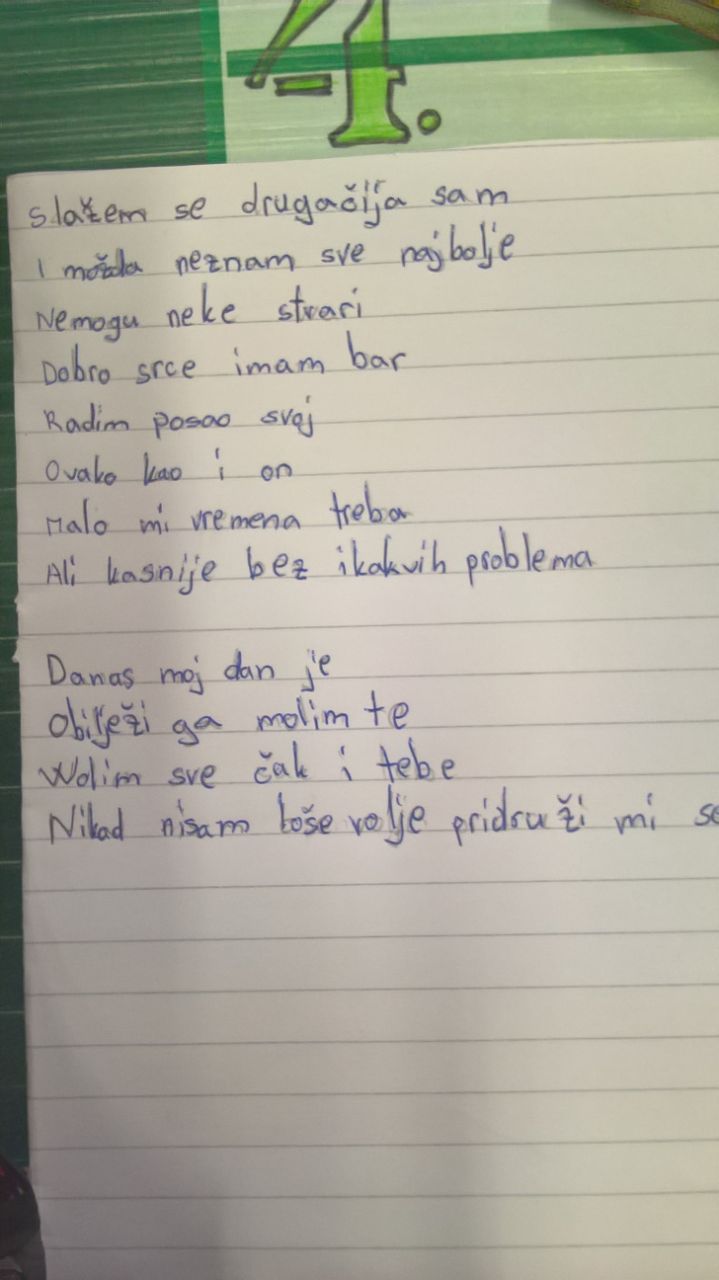 4.
Slažem se drugačija sam
I možda neznam sve najbolje
Nemogu neke stvari
Dobro srce imam bar
Radim posao svoj
Ovako kao i on
Malo mi vremena treba
Ali kasnije bez ikakvih problema
Danas moj dan je
Obilježi ga molim te
Wolim sve čak i tebe
Nikad nisam loše volje pridruži mi se